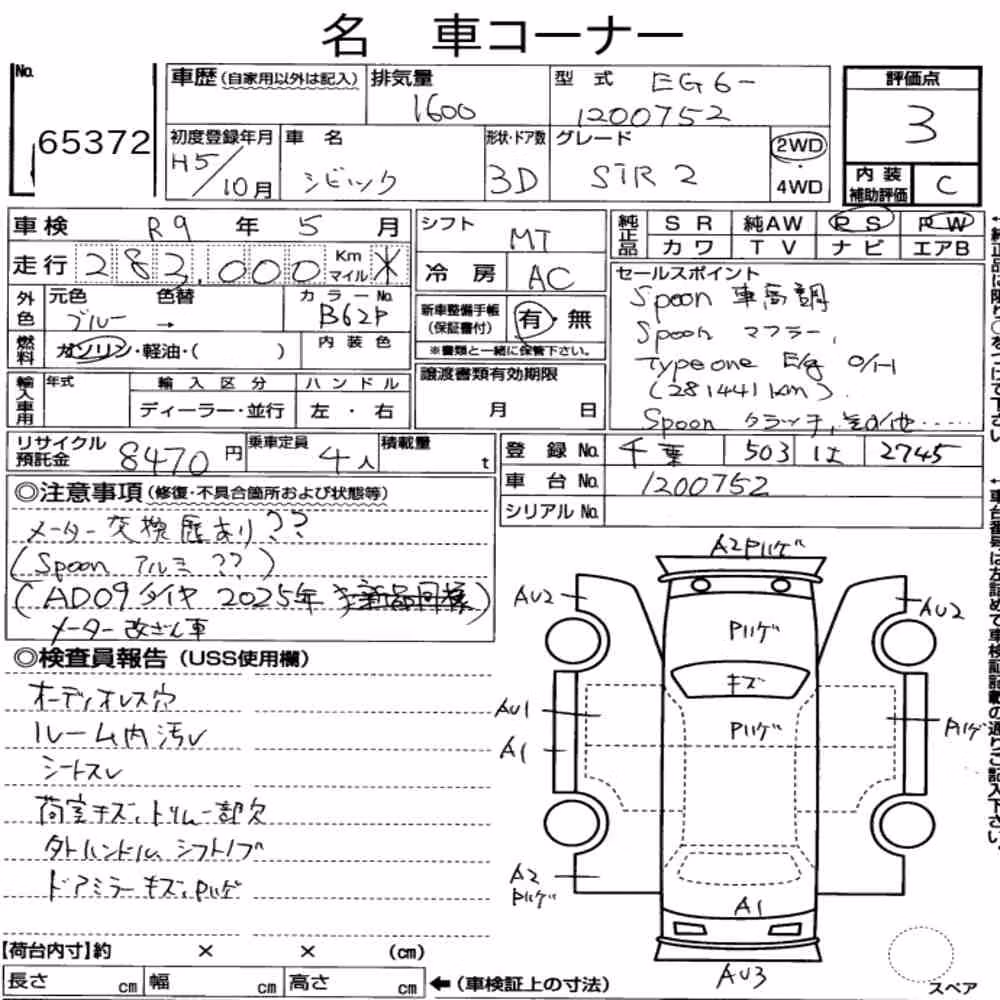 名 車コーナー
No.
65372
車歴(自家用以外は記入)
排気量
1600
型式
EG6-
1200752
評価点
3
初度登録年月
H5/10月
車名
シビック
形状・ドア数
3D
グレード
SiR 2
2WD
・
4WD
内装
補助評価
C
車検 R9年 5月
走行 282,000 Km マイル *
外色
元色 色替
ブルー →
カラーNo.
B62P
燃料
ガソリン・軽油・( )
内装色
輸入車用
年式
輸入区分
ディーラー・並行
ハンドル
左・右
シフト
MT
冷房
AC
新車整備手帳
(保証書付)
有・無
※書類と一緒に保管下さい。
譲渡書類有効期限
月 日
純正品
SR 純AW PS PW
カワ TV ナビ エアB
セールスポイント
Spoon 車高調
Spoon マフラー,
Typeone E/g O/H
(281441km)
Spoon クラッチ,その他......
←純正品は限り○をつけて下さい。
リサイクル
預託金
8470円
乗車定員
4人
積載量
t
登録No.
千葉 503 は 2745
車台No.
1200752
シリアルNo.
←車台番号は左詰めで車検証記載の通りご記入下さい。
◎注意事項(修復・不具合箇所および状態等)
メーター交換歴あり??
(Spoon アルミ??)
(AD09タイヤ 2025年 新品同様)
メーター改ざん車
◎検査員報告(USS使用欄)
オーディオレス穴
ルーム内汚レ
シートスレ
荷室キズ、トリム一部欠
タトハンドル シフトノブ
ドアミラーキズ、Pハゲ
A2Pハゲ
AU2
AU2
Pハゲ
キズ
AU1
Pハゲ
Pハゲ
A1
A2
Pハゲ
A1
AU3
スペア
【荷台内寸】約 × × (cm)
長さ cm 幅 cm 高さ cm ←(車検証上の寸法)